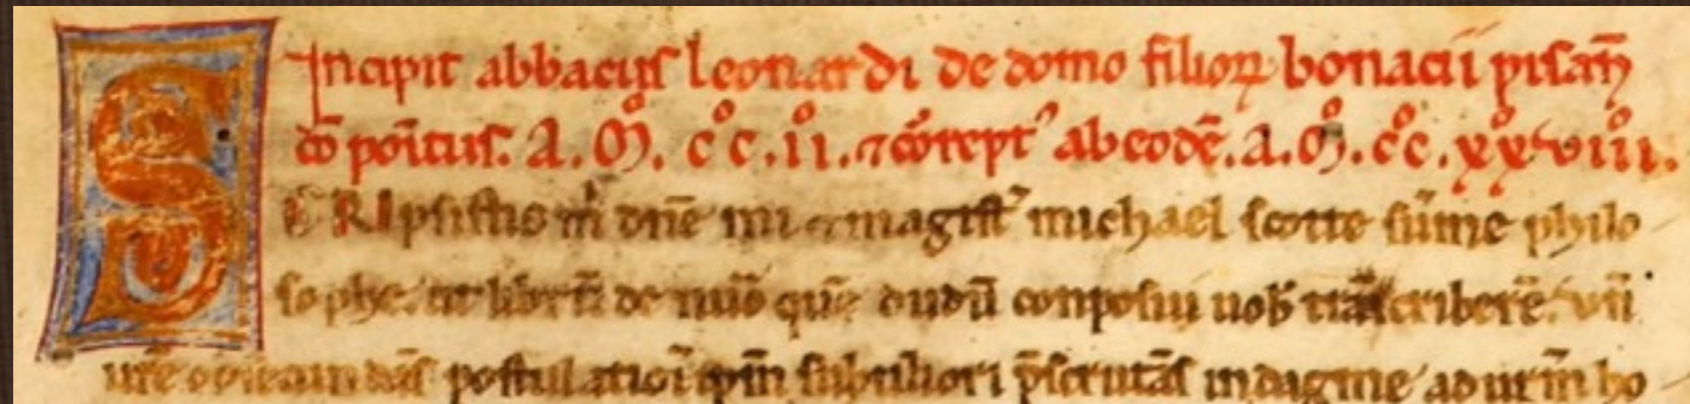 Incipit abbacus leonardi de domo filioꝝ bonacii pisañ
cōpoītus. A. Mͦ. cͦc. iͦi. ⁊ corept' ab eodē. a. mͦ. cͦc. xͦxviiiͦi.
SCRIpsistis m dnē mi ⁊ magist̄ michael scotte sūme philo
sophe. ut librū de nūo quē dudū conposui uob trāscriberē. vñ
ure postulatioī ipm̄ subtiliori p̄scrutās indagine ad urm̄ ho